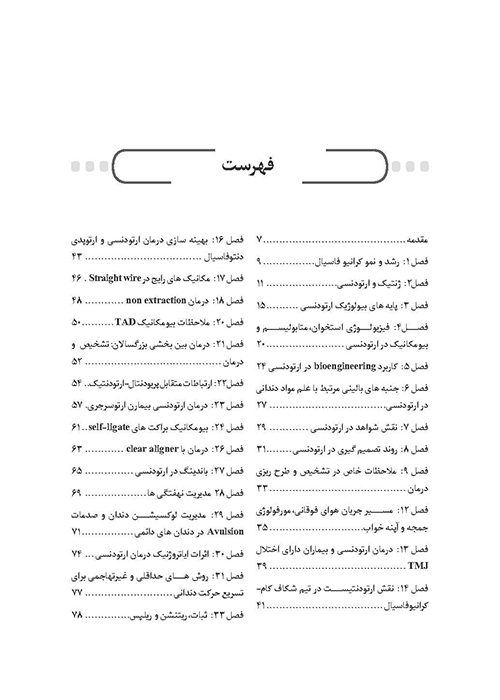 فهرست
مقدمه ........................................... ۷
فصل ۱: رشد و نمو کرانیو فاسیال................ ۹
فصل۲: ژنتیک و ارتودنسی...................... ۱۱
فصل ۳: پایه های بیولوژیک ارتودنسی .......... ۱۵
فصــل۴: فیزیولــوژی استخوان، متابولیســم و
بیومکانیک در ارتودنسی........................ ۲۰
فصل ۵: کاربرد bioengineering در ارتودنسی ۲۴
فصل ۶: جنبه های بالینی مرتبط با علم مواد دندانی
در ارتودنسی................................... ۲۷
فصل ۷: نقش شواهد در ارتودنسی ............ ۲۹
فصل ۸: روند تصمیم گیری در ارتودنسی........ ۳۱
فصل ۹: ملاحظات خاص در تشخیص و طرح ریزی
درمان .......................................... ۳۳
فصل ۱۲: مســیر جریان هوای فوقانی، مورفولوژی
جمجه و آپنه خواب............................ ۳۵
فصل ۱۳: درمان ارتودنسی و بیماران دارای اختلال
TMJ .......................................... ۳۹
فصل ۱۴: نقش ارتودنتیســت در تیم شکاف کام-
کرانیوفاسیال................................... ۴۱
فصل ۱۶: بهینه سازی درمان ارتودنسی و ارتوپدی
دنتوفاسیال .................................... ۴۳
فصل ۱۷: مکانیک های رایج در Straight wire . ۴۶
فصل ۱۸: درمان non extraction ............ ۴۸
فصل ۲۰: ملاحظات بیومکانیک TAD.......... ۵۰
فصل ۲۱: درمان بین بخشی بزرگسالان: تشخیص و
درمان .......................................... ۵۲
فصل۲۲: ارتباطات متقابل پریودنتال-ارتودنتیک.. ۵۴
فصل ۲۳: درمان ارتودنسی بیمارن ارتوسرجری. ۵۷
فصل ۲۴: بیومکانیک براکت های self-ligate.. ۶۱
فصل ۲۶: درمان با clear aligner ............ ۶۳
فصل ۲۷: باندینگ در ارتودنسی ............... ۶۵
فصل ۲۸ مدیریت نهفتگی ها................... ۶۹
فصل ۲۹: مدیریت لوکسیشــن و صدمات
Avulsion در دندان های دائمی............... ۷۱
فصل ۳۰: اثرات ایاتروژنیک درمان ارتودنسی... ۷۴
فصل ۳۱: روش هــای حداقلی و غیرتهاجمی برای
تسریع حرکت دندانی........................... ۷۷
فصل ۳۳: ثبات، ریتنشن و ریلپس.............. ۷۸